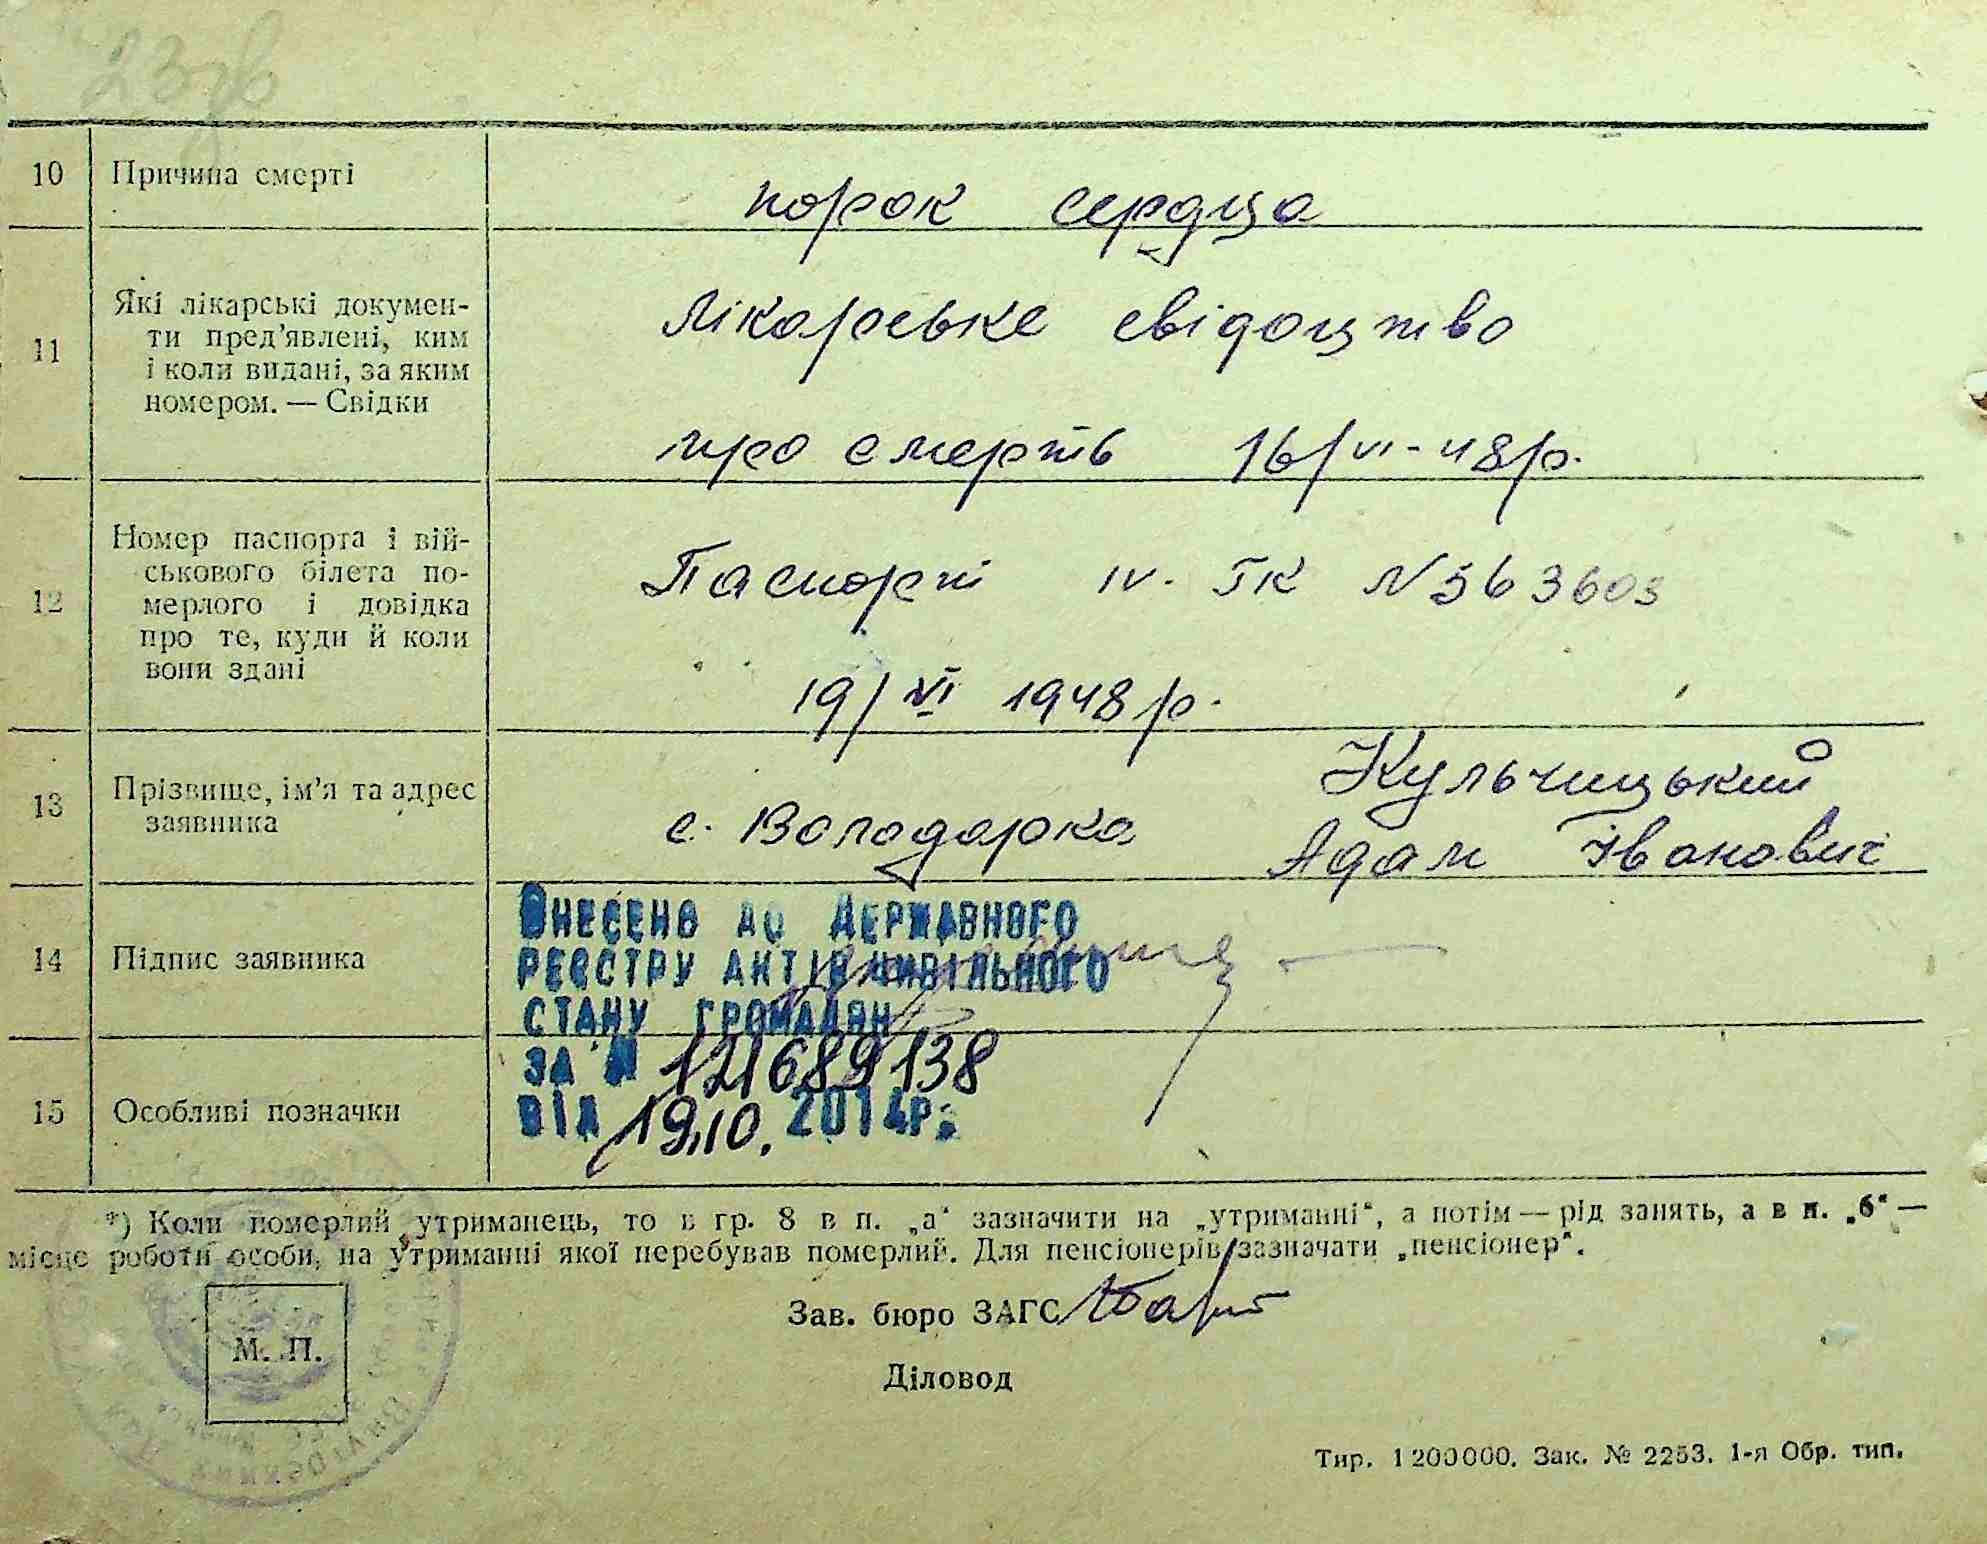 23зв
10 Причина смерті
порок сердца
11 Які лікарські докумен-
ти пред'явлені, ким
і коли видані, за яким
номером. — Свідки
Лікарське свідоцтво
про смерть 16/VI-48р.
12 Номер паспорта і вій-
ськового білета по-
мерлого і довідка
про те, куди й коли
вони здані
Паспорт IV. ТК N 563603
19/VI 1948р.
13 Прізвище, ім'я та адрес
заявника
с. Володарка
Кульчицький
Адам Іванович
14 Підпис заявника
Внесено до Державного
реєстру актів цивільного
стану громадян
за № 121689138
від 19.10. 2014р.
15 Особливі позначки
*) Коли померлий утриманець, то в гр. 8 в п. „а" зазначити на „утриманні", а потім — рід занять, а в п. „б" —
місце роботи особи, на утриманні якої перебував померлий. Для пенсіонерів зазначати „пенсіонер".
М. П.
Зав. бюро ЗАГС
Діловод
Тир. 1200000. Зак. № 2253. 1-я Обр. тип.